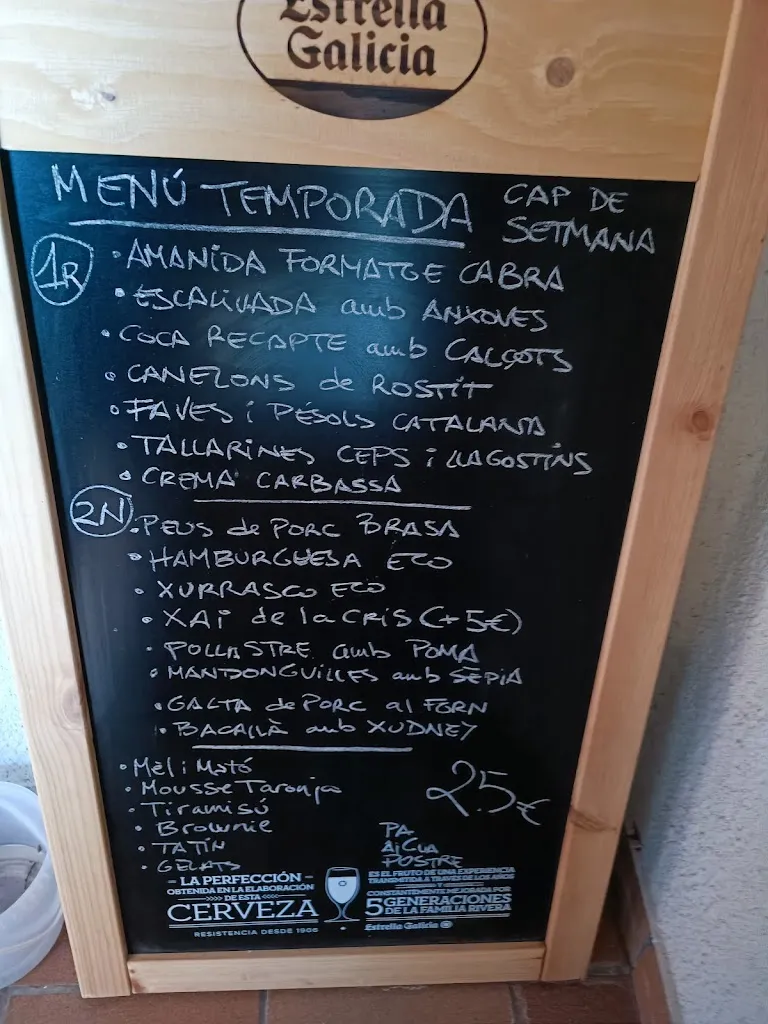 Estrella
Galicia
MENÚ TEMPORADA
CAP DE
SETMANA
1R
• AMANIDA FORMATGE CABRA
• ESCALIVADA amb ANXOVES
• COCA RECAPTE amb CALÇOTS
• CANELONS de ROSTIT
• FAVES i PÈSOLS CATALANA
• TALLARINES CEPS i LLAGOSTINS
• CREMA CARBASSA
2N
• PEUS de PORC BRASA
• HAMBURGUESA ECO
• XURRASCO ECO
• XAI de la CRIS (+5€)
• POLLASTRE amb POMA
• MANDONGUILLES amb SÈPIA
• GALTA de PORC al FORN
• BACALLÀ amb XUDNEY
• Mel i Mató
• Mousse Taronja
• Tiramisú
• Brownie
• TATÍN
• GELATS
25€
PA
AIGUA
POSTRE
– LA PERFECCIÓN –
OBTENIDA EN LA ELABORACIÓN
DE ESTA
CERVEZA
RESISTENCIA DESDE 1906
ES EL FRUTO DE UNA EXPERIENCIA
TRANSMITIDA A TRAVÉS DE LOS AÑOS
Y
CONSTANTEMENTE MEJORADA POR
5 GENERACIONES
DE LA FAMILIA RIVERA
Estrella Galicia